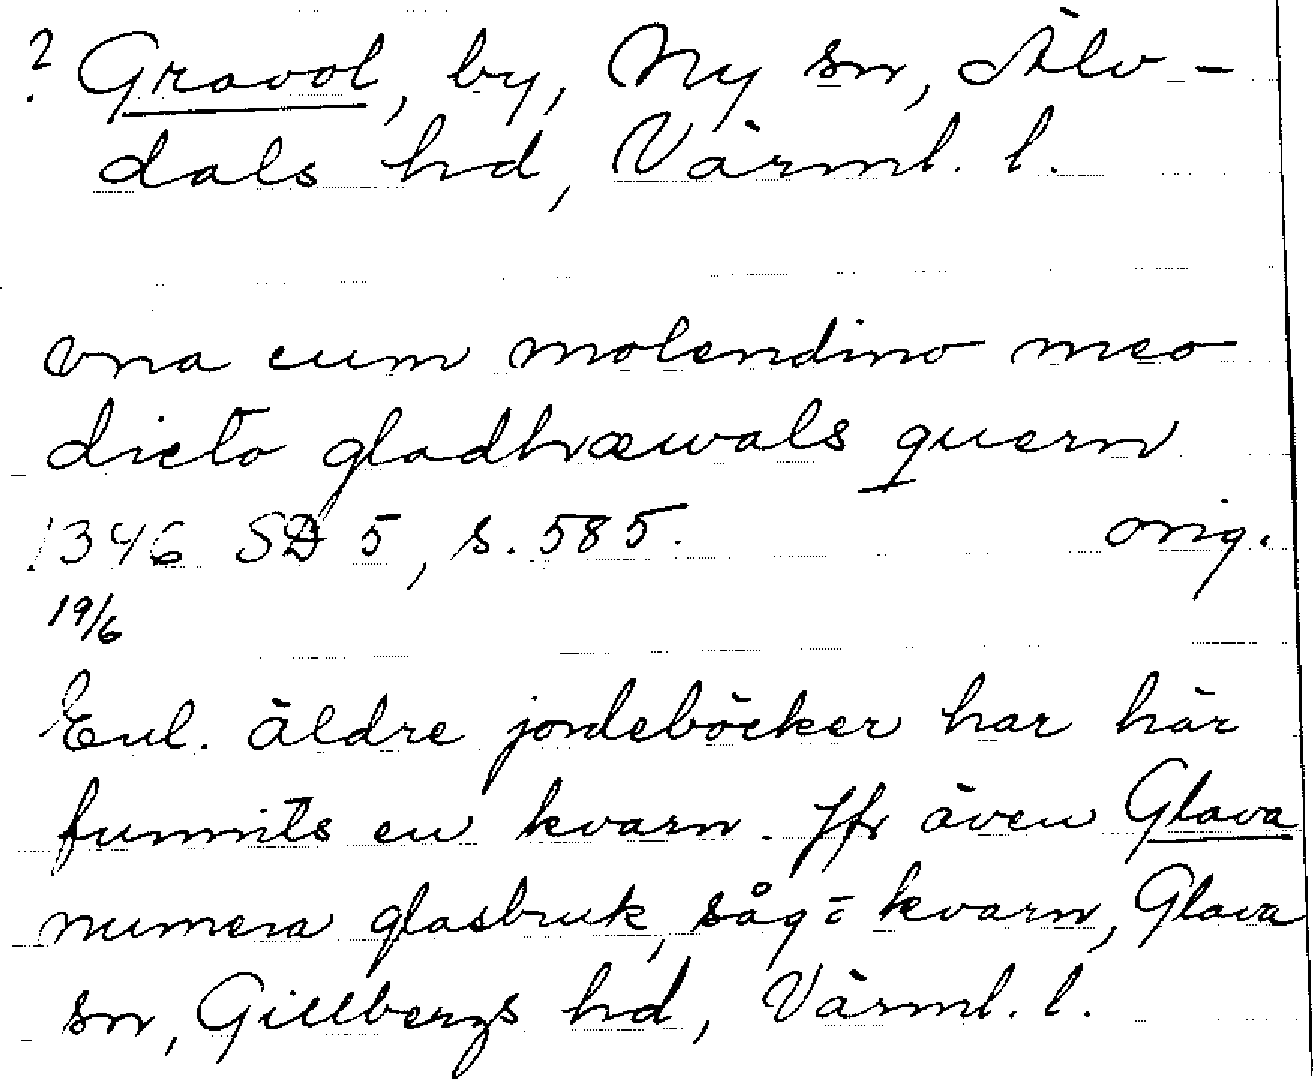 ? Gravol, by, Ny sn, Älv-
dals hd, Värml. l.
vna cum molendino meo
dicto gladhræwals quern
1346 SD 5, s. 585. orig.
19/6
Enl. äldre jordeböcker har här
funnits en kvarn. Jfr även Glava
numera glasbruk, såg= kvarn, Glava
sn, Gillbergs hd, Värml. l.